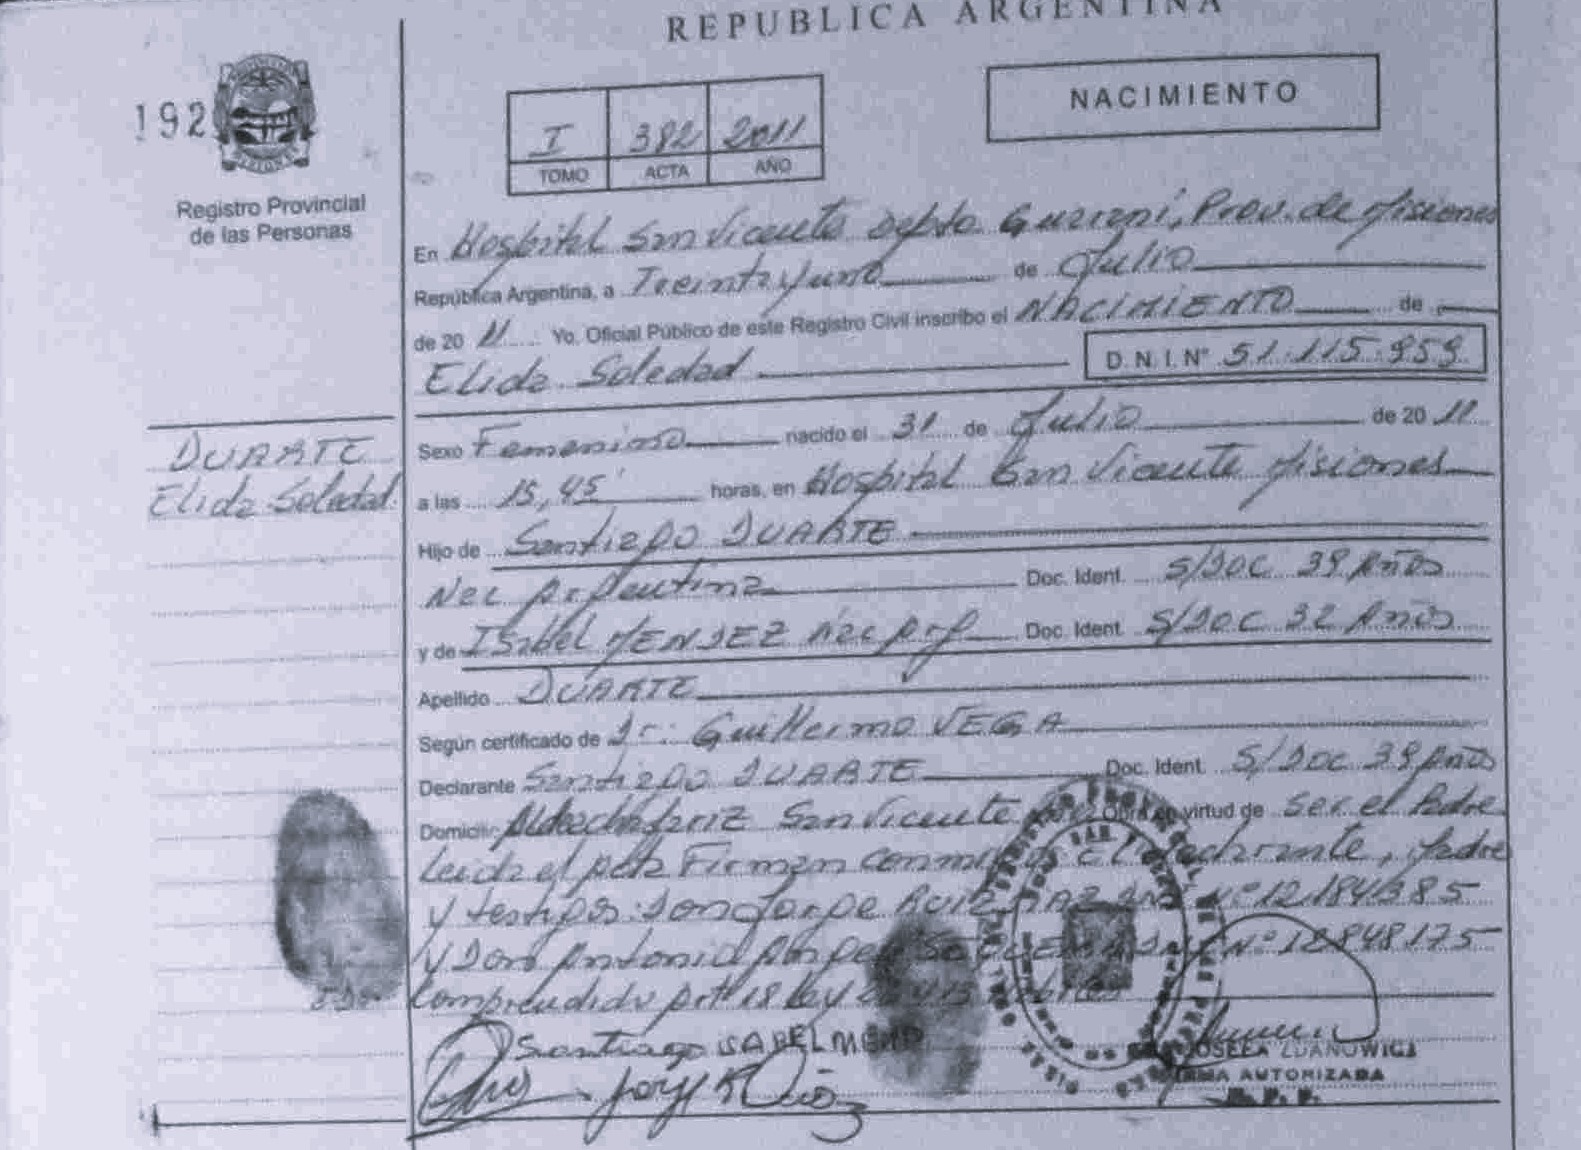 REPUBLICA ARGENTINA
192
Registro Provincial
de las Personas
I 382 2011
TOMO ACTA AÑO
NACIMIENTO
En Hospital San Vicente Depto. Guaraní, Prov. de Misiones
República Argentina, a Treinta y uno de Julio
de 20 11 Yo. Oficial Público de este Registro Civil inscribo el NACIMIENTO de
Elida Soledad D.N.I. Nº 51.115.959
DUARTE
Elida Soledad
Sexo Femenino nacido el 31 de Julio de 20 11
a las 15,45 horas, en Hospital San Vicente Misiones
Hijo de Santiago DUARTE
Nac Argentina Doc. Ident. S/DOC 39 Años
y de Isabel MENDEZ Nac Arg Doc. Ident. S/DOC 32 Años
Apellido DUARTE
Según certificado de Dr. Guillermo VEGA
Declarante Santiago DUARTE Doc. Ident. S/DOC 39 Años
Domicilio San Vicente Obra en virtud de Ser el Padre
Leida el Acta Firman conmigo El Declarante, Madre
y testigos: Don Jorge Ruiz Nº 12.184.385
y Don Antonio Nº 12848175
Comprendido Art 18 Ley
Santiago ISABEL MEND
Jorge R
LUANOWICZ
FIRMA AUTORIZADA
R. P. P.